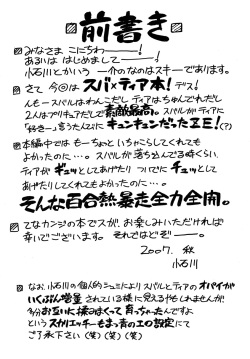 前書き
みなさま こにちわーーー!
あるいは はじめましてーーー!
小石川とかいう 一介のなのはスキーであります。
さて 今回は スバ×ティア本! デス!
んもースバルはわんこだし ティアはちゅんでれだし
2人はプリキュアだしで 素敵最高。スバルがティアに
「好きー」言うたんびに キュンキュンだったZE!(?)
本編中では もーちょっといちゃこらしてくれても
よかったのに…。スバルが落ち込んでる時くらい、
ティアが ギュッとしてあげたり ついでに チュッとして
あげたりしてくれてもよかったのに…。
そんな百合熱暴走全力全開。
てなカンジの本でスが、お楽しみいただければ
幸いでございます。それではどぞーー。
2007. 秋
小石川
なお、小石川の個人的シュミによりスバルとティアのオパイが
いくぶん増量されている様に見えるやもしれませんが
多分お互いに揉みまくって育っちゃたんですよ
というスカリエッチーもまっ青のエロ設定にて
ご了承下さい (笑) (笑) (笑)